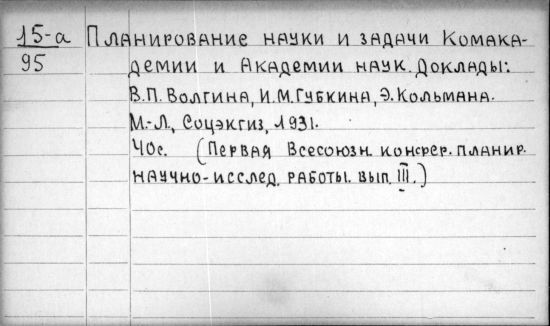 15-а Планирование науки и задачи Комака-
95 демии и Академии наук. Доклады:
В.П. Волгина, И.М. Губкина, Э. Кольмана.
М.-Л., Соцэкгиз, 1931.
40с. (Первая Всесоюзн. конфер. планир.
научно-исслед. работы. вып. III.)